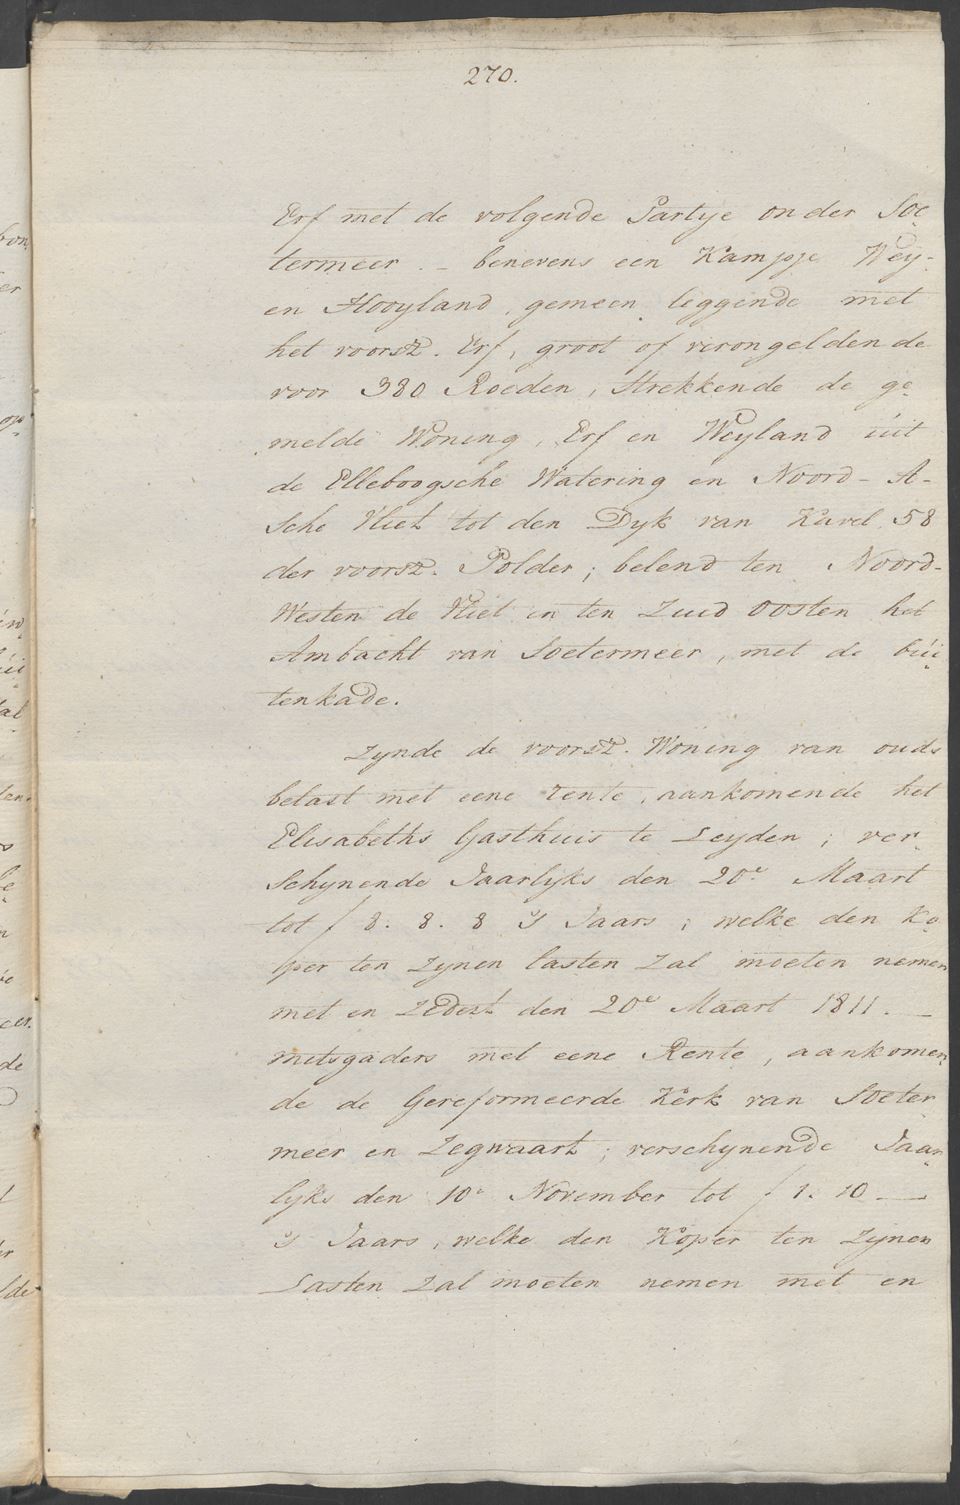 270.
Erf met de volgende Partye onder Soe„
termeer. – benevens een Kampje Wey-
en Hooyland, gemeen leggende met
het voorsz. Erf, groot of verongeldende
voor 380 Roeden, Strekkende de ge„
melde Woning, Erf en Weyland uit
de Elleboogsche Watering en Noord-A-
Sche Vliet tot den Dyk van Kavel 58
der voorsz. Polder; belend ten Noord-
Westen de Vliet en ten Zuid Oosten het
Ambacht van Soetermeer, met de bui„
tenkade.
Zynde de voorsz. Woning van ouds
belast met eene rente, aankomende het
Elisabeths Gasthuis te Leyden; ver„
Schynende Jaarlyks den 20e Maart
tot ƒ 8. 8. 8 's Jaars; welke den Ko„
per ten Zynen lasten Zal moeten nemen
met en Zedert den 20e Maart 1811. —
mitsgaders met eene Rente, aankomen„
de de Gereformeerde Kerk van Soeter„
meer en Zegwaart; verschynende Jaar„
lyks den 10e November tot ƒ 1. 10 —
's Jaars, welke den Koper ten Zynen
Lasten Zal moeten nemen met en